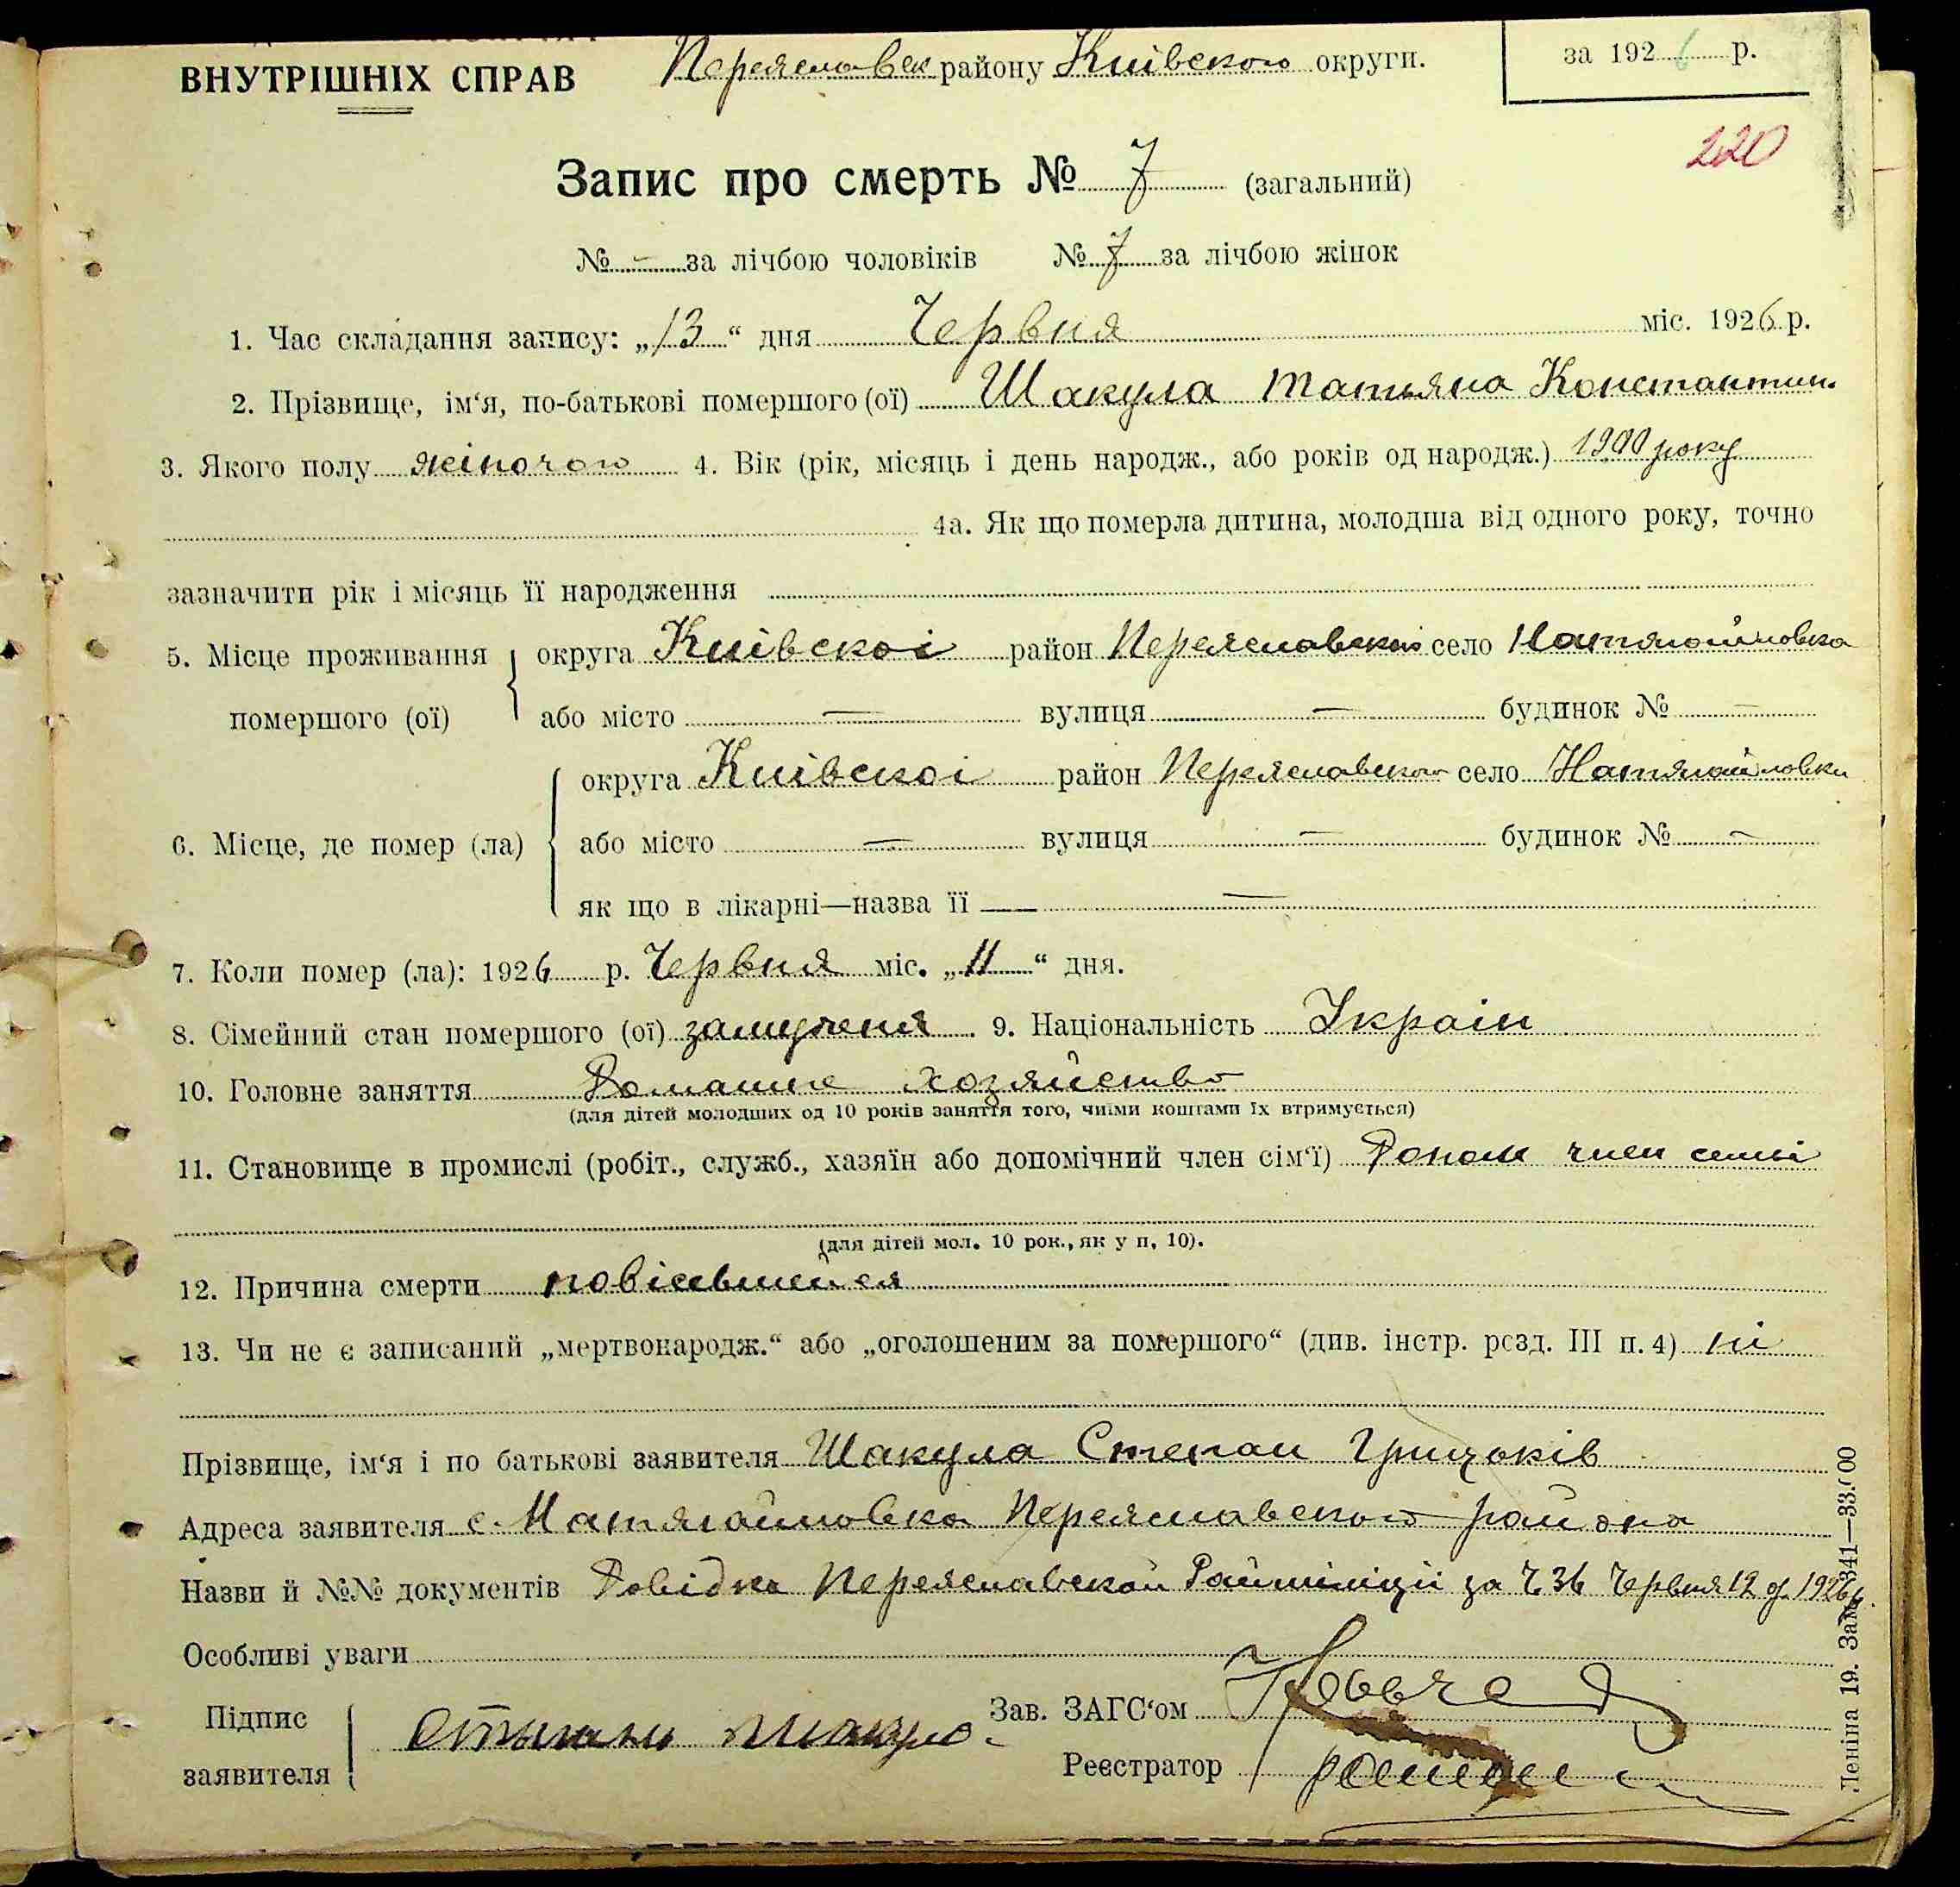 ВНУТРІШНІХ СПРАВ
Переяславск району Київского округи.
за 1926 р.
220
Запис про смерть № 7 (загальний)
№ - за лічбою чоловіків № 7 за лічбою жінок
1. Час складання запису: „13“ дня Червня міс. 1926 р.
2. Прізвище, ім‘я, по-батькові помершого (ої) Шакула Татьяна Константин.
3. Якого полу жіночого 4. Вік (рік, місяць і день народж., або років од народж.) 1900 року
4а. Як що померла дитина, молодша від одного року, точно
зазначити рік і місяць її народження
5. Місце проживання округа Київскоі район Переяславского село
помершого (ої) або місто — вулиця — будинок № —
округа Київскоі район Переяславского село
6. Місце, де помер (ла) або місто — вулиця — будинок № —
як що в лікарні—назва її — —
7. Коли помер (ла): 1926 р. Червня міс. „11“ дня.
8. Сімейний стан помершого (ої) замужня 9. Національність Україн
10. Головне заняття Домашнє хозяйство
(для дітей молодших од 10 років заняття того, чиїми коштами їх втримується)
11. Становище в промислі (робіт., служб., хазяїн або допомічний член сім‘ї) Допом член семьі
(для дітей мол. 10 рок., як у п. 10).
12. Причина смерти повісившися
13. Чи не є записаний „мертвонародж.“ або „оголошеним за помершого“ (див. інстр. розд. III п. 4) ні
Прізвище, ім‘я і по батькові заявителя Шакула Степан
Адреса заявителя с. Переяславского району
Назви й №№ документів Довідка Переяславскои Райміліції за Ч 36 Червня 12 д. 1926 р.
Особливі уваги
Підпис заявителя Зав. ЗАГС‘ом
Реєстратор
Леніна 19. Зам. 341—33.000